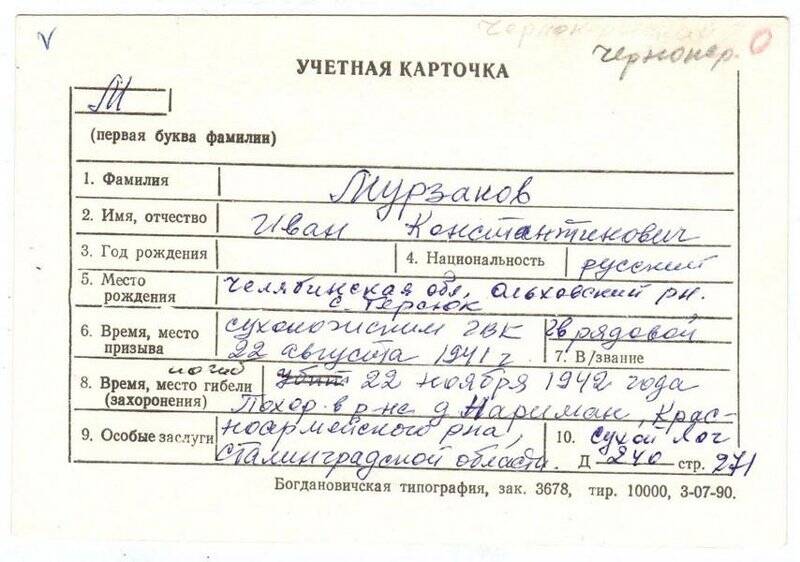 V
чернонер. 0
УЧЕТНАЯ КАРТОЧКА
М
(первая буква фамилии)
1. Фамилия Мурзаков
2. Имя, отчество Иван Константинович
3. Год рождения 4. Национальность русский
5. Место рождения Челябинская обл, Ольховский рн.
с. Терсюк
6. Время, место призыва сухоложским ГВК гв рядовой
22 августа 1941 г. 7. В/звание
погиб
8. Время, место гибели убит 22 ноября 1942 года
(захоронения) Похор. в р-не д Нариман, Крас-
9. Особые заслуги ноармейского рна, 10. Сухой Лог
Сталинградской области. Д 240 стр. 271
Богдановичская типография, зак. 3678, тир. 10000, 3-07-90.